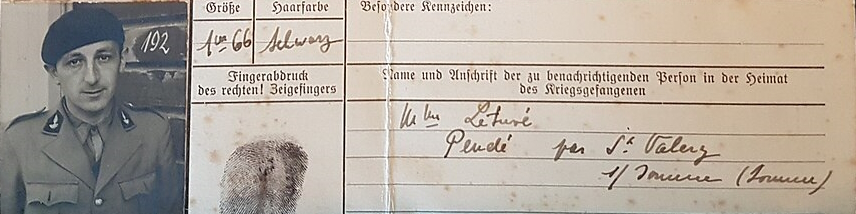 192
Größe
Haarfarbe
1m 66
schwarz
Fingerabdruck
des rechten! Zeigefingers
Besondere Kennzeichen:
Name und Anschrift der zu benachrichtigenden Person in der Heimat
des Kriegsgefangenen
Mme Létuvé
Pendé par St Valery
s/ Somme (Somme)